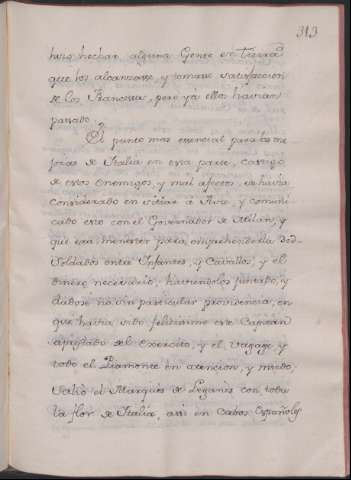 313
hizo hechar alguna Gente en tierra
que los alcanzasse, y tomase satisfaccion
de los Franceses, pero ya ellos havian
passado.
El punto mas esencial para las me-
joras de Italia en esta parte, castigo
de estos enemigos, y mal afectos, se havia
considerado en sitiar à Aste, y comuni-
cado esto con el Governador de Milàn, y
que era menester para emprehenderla
Soldados entre Infantes, y Cavallos, y el
dinero necesario, haviendolos juntado, y
dadose no sin particular providencia, en
que havia sido felicisimo este Capitàn
aprestado el exercito, y el vagage, y
todo el Piamonte en atencion, y miedo,
salió el Marquès de Leganès con toda
la flor de Italia, assi en Cabos Españoles